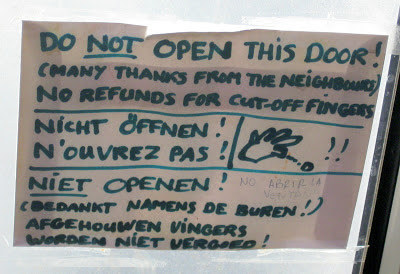 DO NOT OPEN THIS DOOR!
(MANY THANKS FROM THE NEIGHBOURS)
NO REFUNDS FOR CUT-OFF FINGERS
NICHT ÖFFNEN!
N'OUVREZ PAS! !!
NO ABRIR LA
NIET OPENEN!
(BEDANKT NAMENS DE BUREN!)
AFGEHOUWEN VINGERS
WORDEN NIET VERGOED!